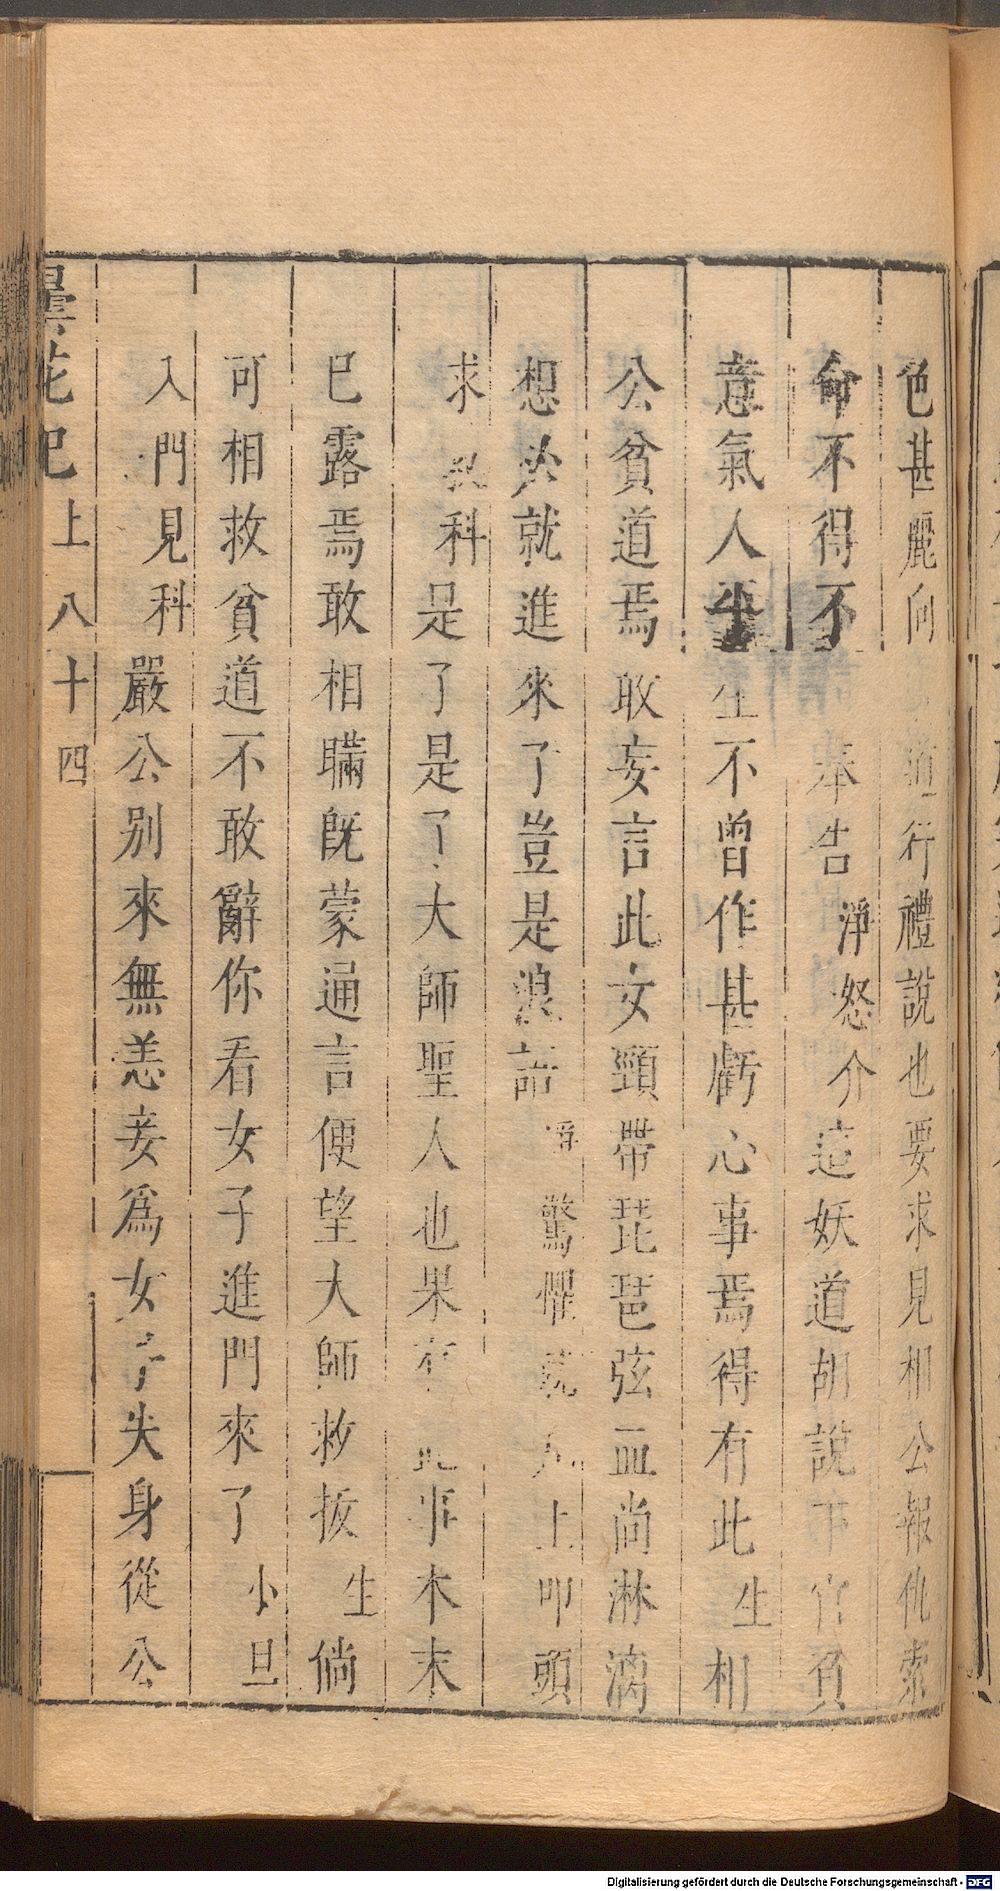 色甚麗向道行禮說也要求見相公報仇索
命不得不奉告淨怒介這妖道胡說下官負
意氣人半生不曾作甚虧心事焉得有此生相
公貧道焉敢妄言此女頸帶琵琶弦血尚淋漓
想必就進來了豈是浪語淨驚懼就上叩頭
求救科是了是了大師聖人也果有此事本末
已露焉敢相瞞既蒙通言便望大師救拔生倘
可相救貧道不敢辭你看女子進門來了小旦
入門見科嚴公別來無恙妾爲女子失身從公
曇花記上八十四
Digitalisierung gefördert durch die Deutsche Forschungsgemeinschaft - DFG